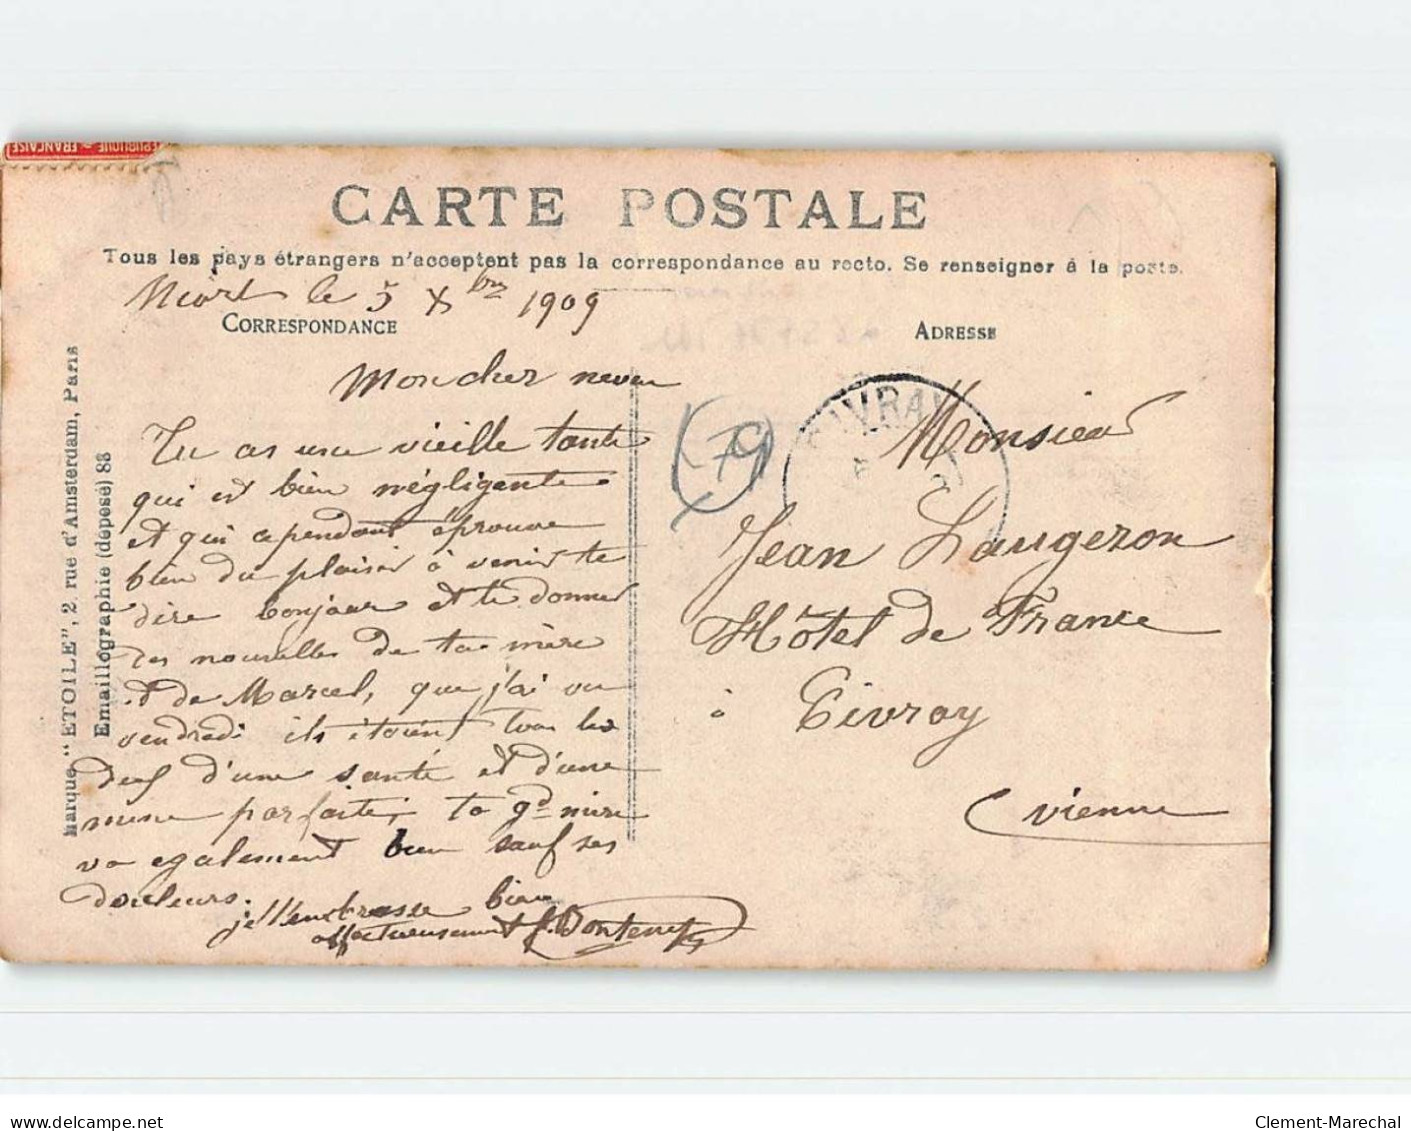 RÉPUBLIQUE FRANÇAISE
CARTE POSTALE
Tous les pays étrangers n'acceptent pas la correspondance au recto. Se renseigner à la poste.
Niort le 5 Xbre 1909
CORRESPONDANCE
ADRESSE
Mon cher neveu
Tu as une vieille tante
qui est bien négligente
et qui cependant éprouve
bien du plaisir à venir te
dire bonjour et te donner
des nouvelles de ta mère
et de Marcel, que j'ai vu
vendredi ils étaient tous les
deux d'une santé et d'une
mine parfaite; ta gd mère
va également bien sauf ses
douleurs.
je t'embrasse bien
affectueusement
79
CIVRAY
Monsieur
Jean Laugeron
Hôtel de France
à Civray
Vienne
Marque "ETOILE", 2, rue d'Amsterdam, Paris
Emaillographie (déposé) 88
www.delcampe.net
Clement-Marechal